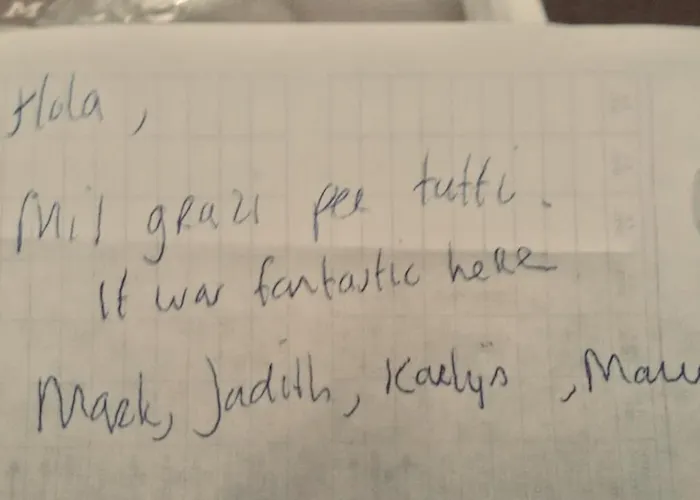 Hola,
Mil grazi per tutti.
It was fantastic here
Mark, Judith, Karlijn,